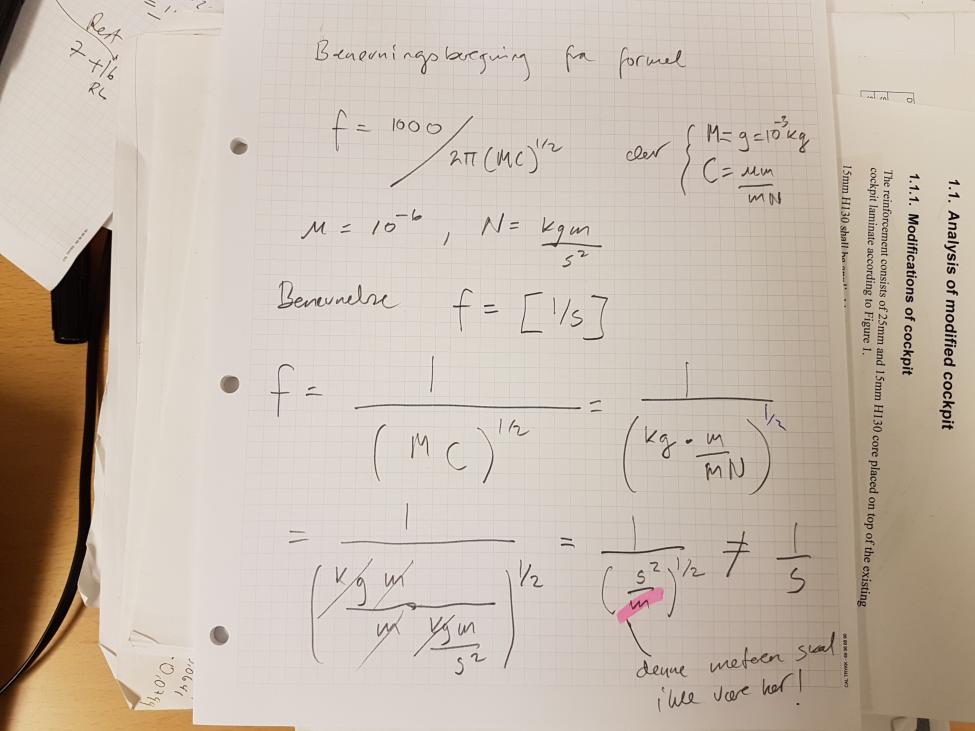 Rest
7 + 16
RL
Benevningsberegning fra formel
f = 1000 / 2π (MC)^1/2
der { M = g = 10^-3 kg
C = μm / mN
μ = 10^-6 , N = kgm / s²
Benevnelse f = [1/s]
f = 1 / (M C)^1/2 = 1 / (kg · m / mN)^1/2
= 1 / (kg m / m kgm / s²)^1/2 = 1 / (s² / m)^1/2 ≠ 1 / s
denne meteren skal
ikke være her!
1.1. Analysis of modified cockpit
1.1.1. Modifications of cockpit
The reinforcement consists of 25mm and 15mm H130 core placed on top of the existing
cockpit laminate according to Figure 1.
15mm H130 shall be